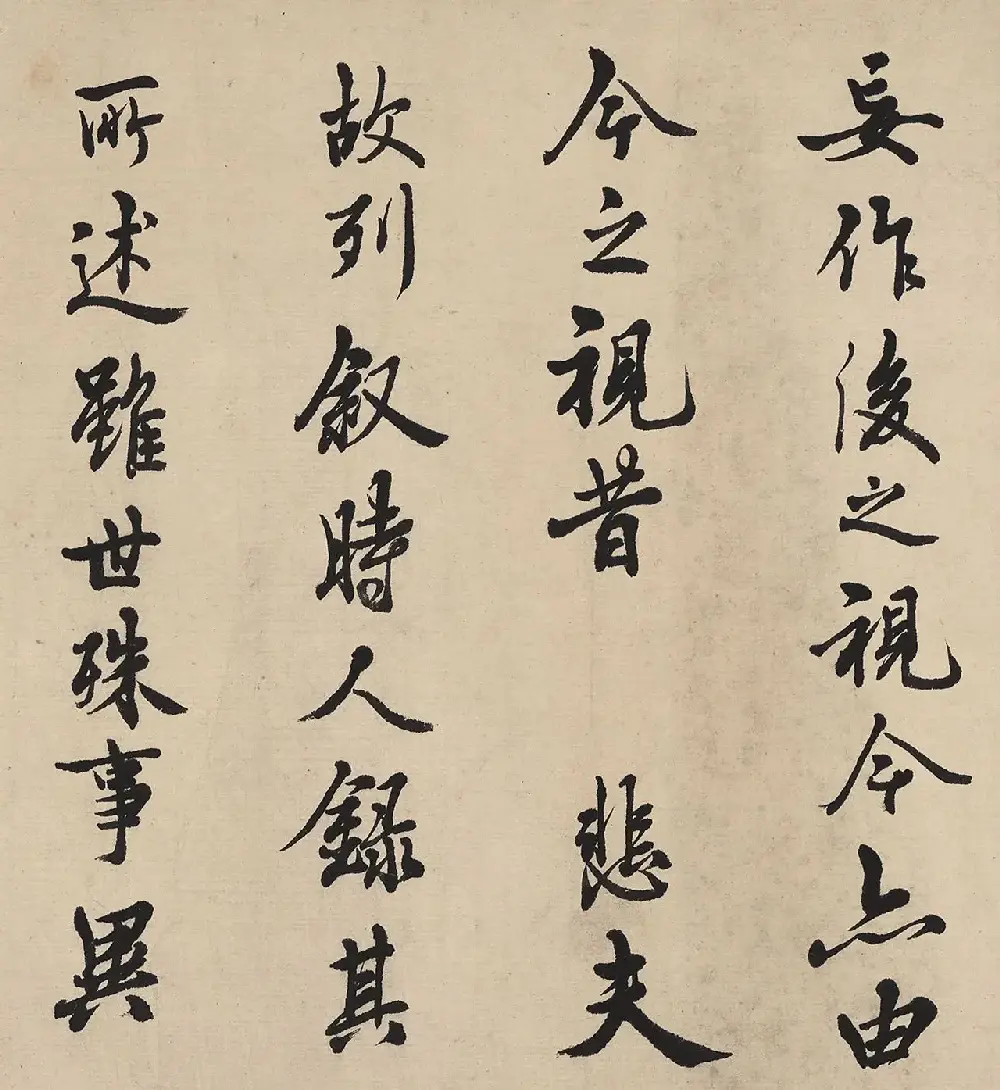 妄作後之視今亦由
今之視昔 悲夫
故列叙時人録其
所述雖世殊事異